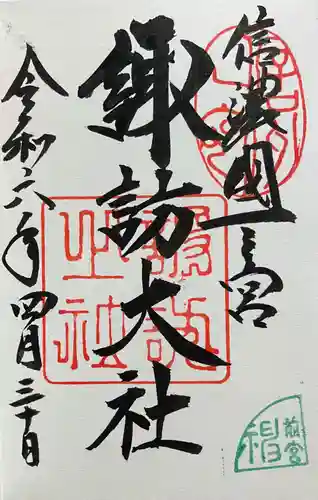 信濃國一之宮
諏訪大社
令和六年四月三十日
諏訪
之社
前宮